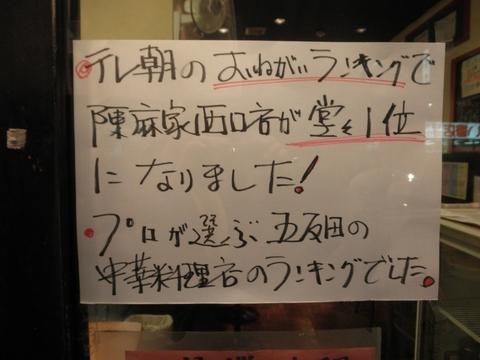 テレ朝のおねがいランキングで
陳麻家西口店が堂々1位
になりました!
プロが選ぶ五反田の
中華料理店のランキングでした。